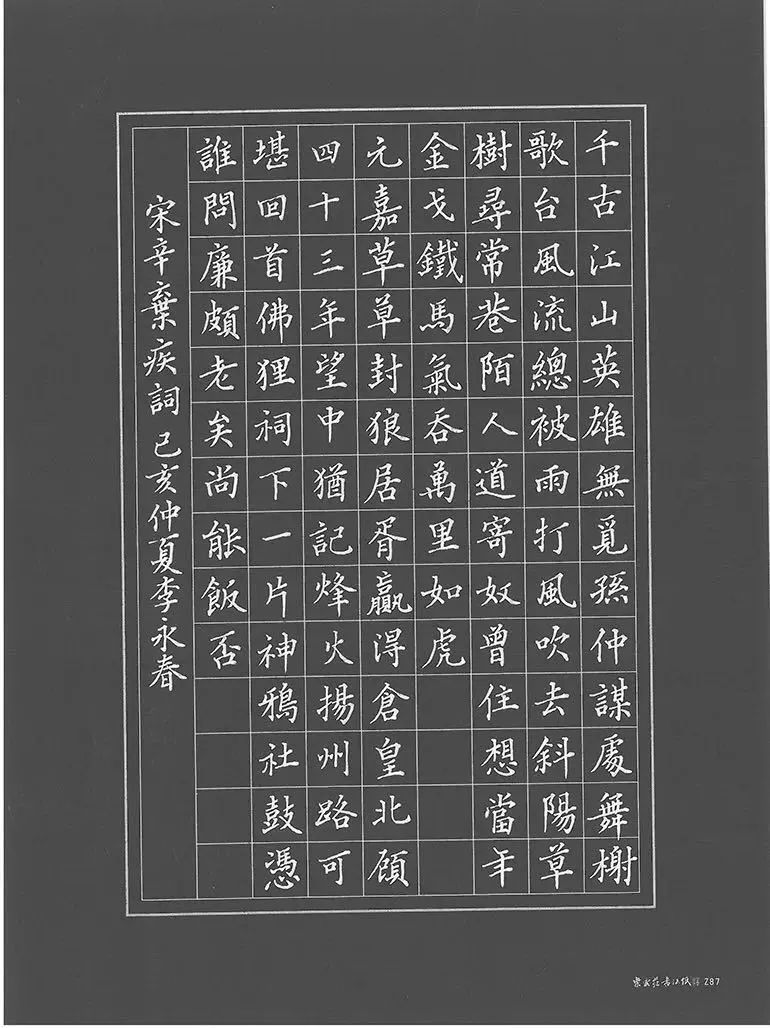 千古江山英雄無覓孫仲謀處舞榭
歌台風流總被雨打風吹去斜陽草
樹尋常巷陌人道寄奴曾住想當年
金戈鐵馬氣吞萬里如虎
元嘉草草封狼居胥贏得倉皇北顧
四十三年望中猶記烽火揚州路可
堪回首佛狸祠下一片神鴉社鼓憑
誰問廉頗老矣尚能飯否
宋辛棄疾詞 己亥仲夏李永春
Z87